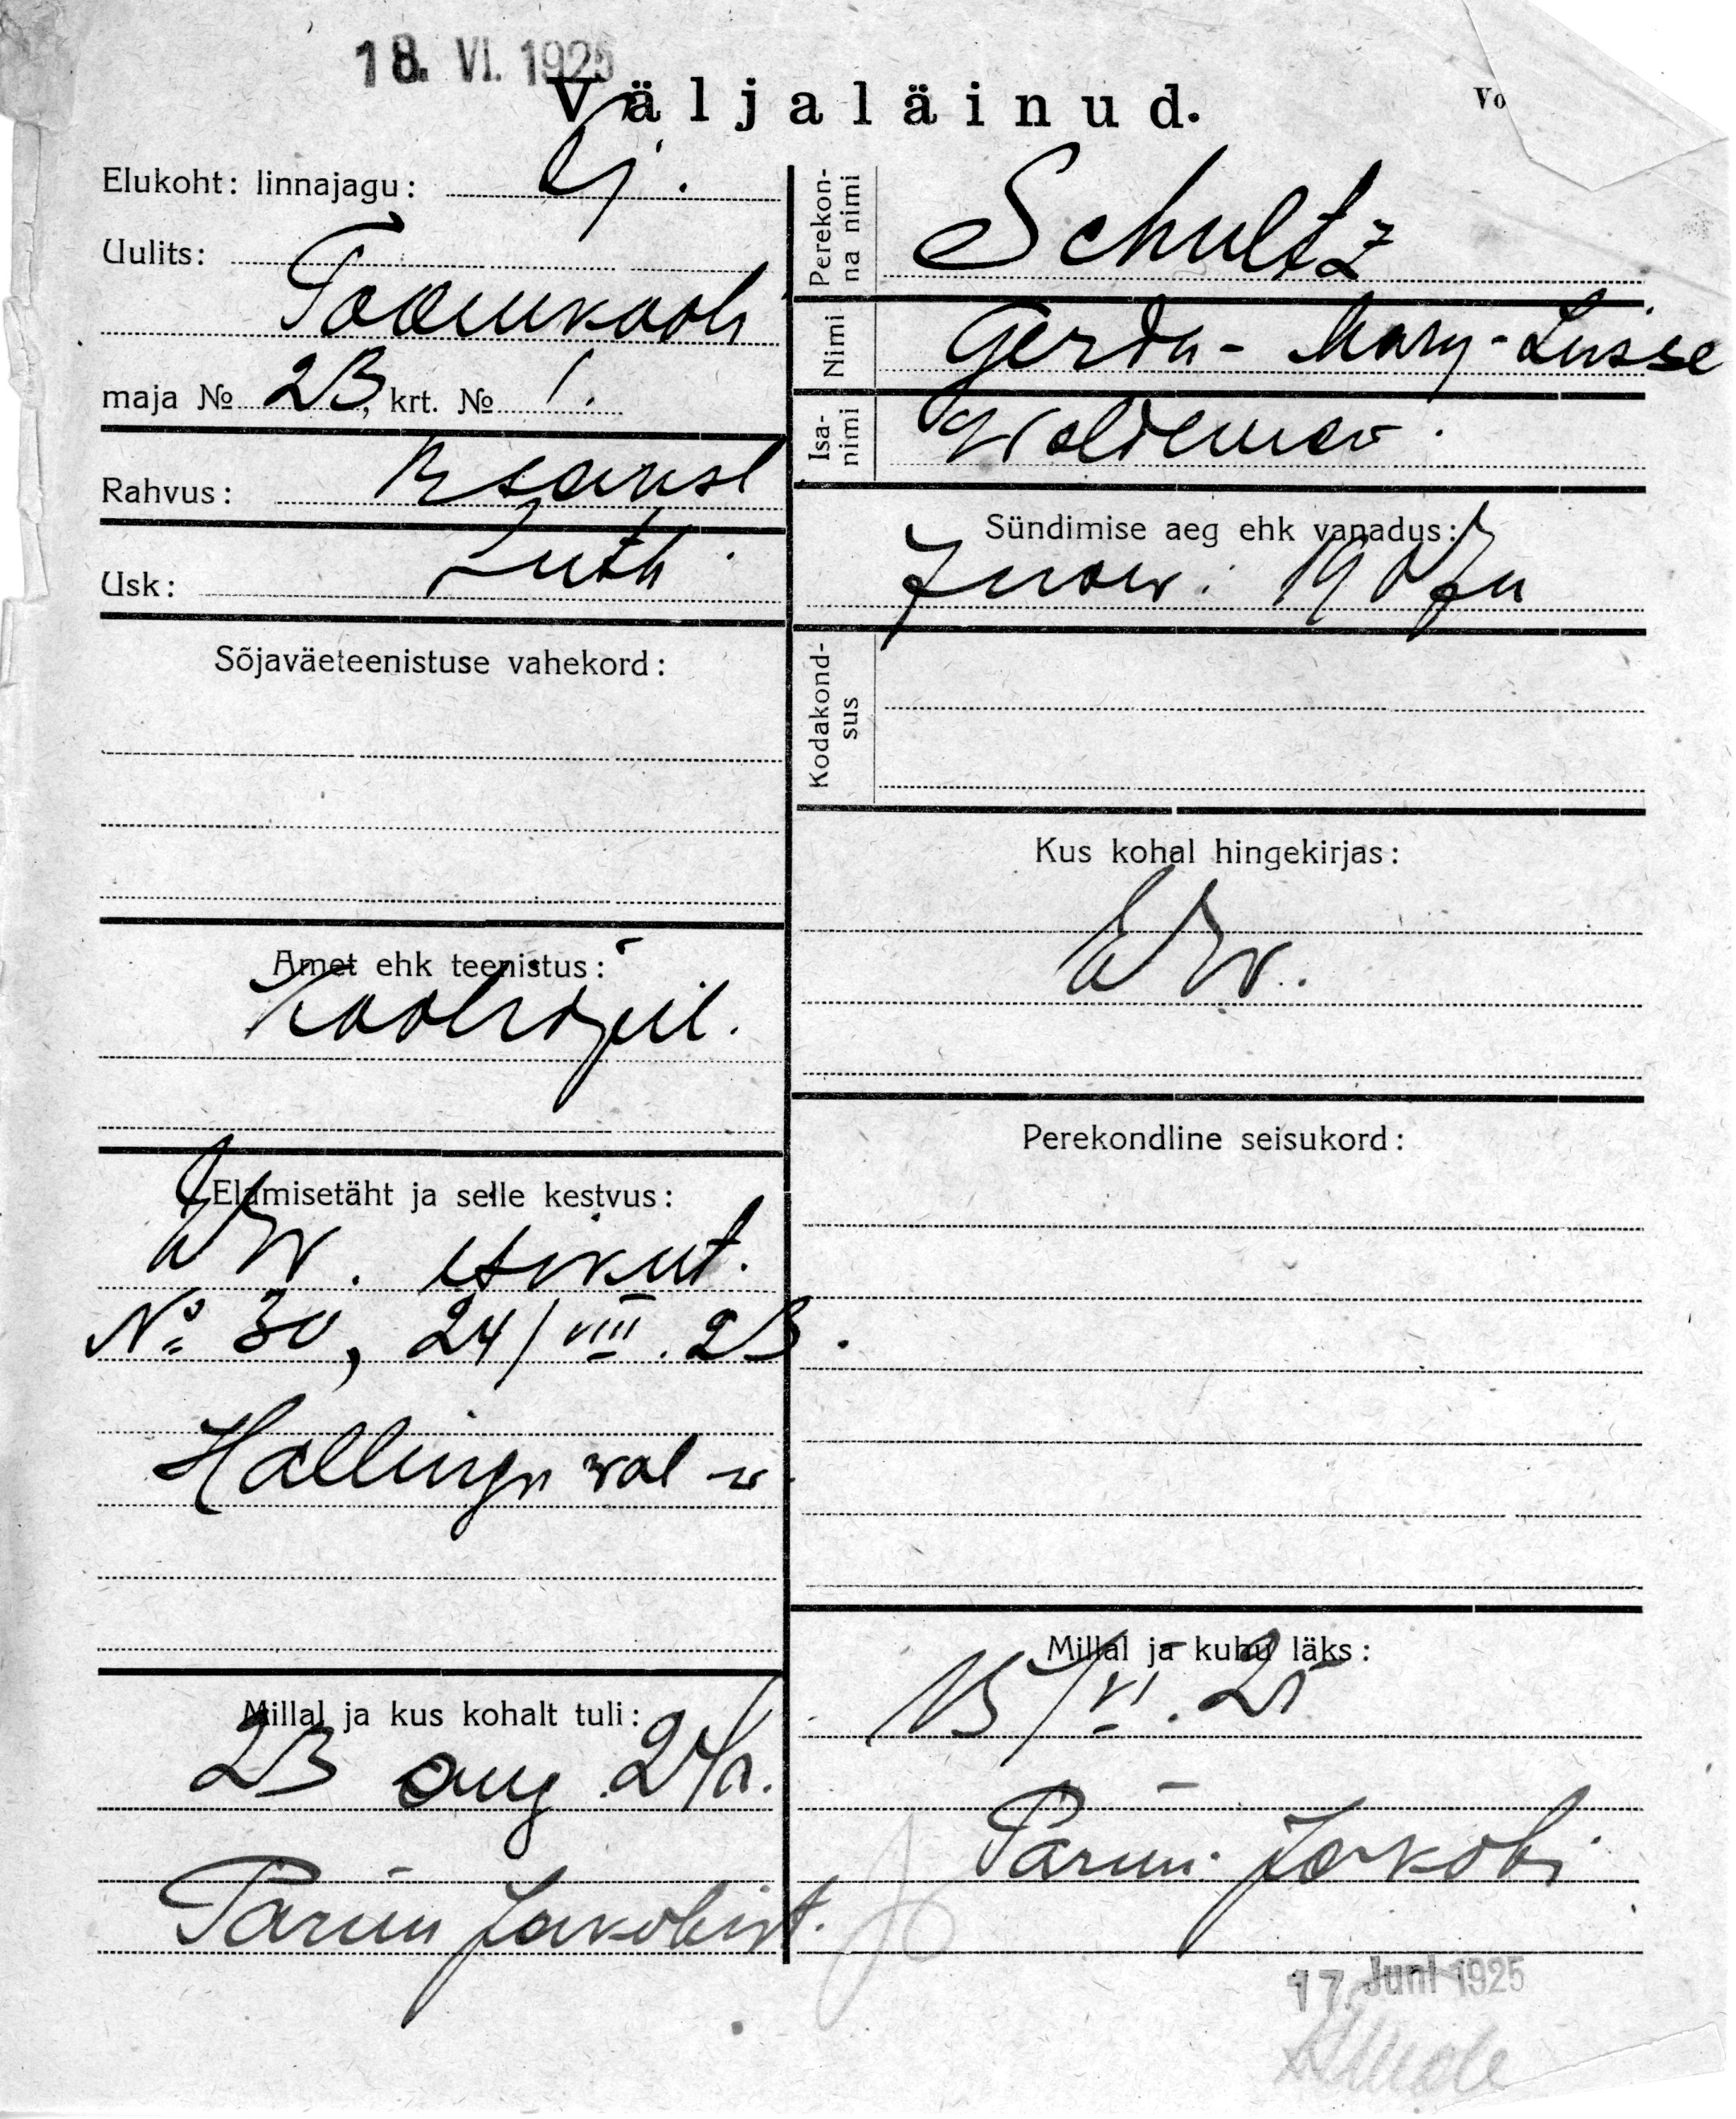 18. VI. 1925
Väljaläinud.
Vo
Elukoht: linnajagu: I j.
Uulits:
Toomkooli
maja № 23, krt. № 1.
Rahvus: saksl
Usk: Luth.
Sõjaväeteenistuse vahekord:
Amet ehk teenistus:
Kooliõpil.
Elamisetäht ja selle kestvus:
EW. isikut.
№ 30, 24/VIII.23.
Hallinga wal-w.
Millal ja kus kohalt tuli:
23 aug 24 a.
Pärnu Jakobist.
Perekonna nimi
Schultz
Nimi
Gerda-Mary-Luisse
Isanimi
Woldemar.
Sündimise aeg ehk vanadus:
Kodakondsus
Kus kohal hingekirjas:
EW.
Perekondline seisukord:
Millal ja kuhu läks:
15/VI.25
Pärnu-Jakobi
17. Juni 1925